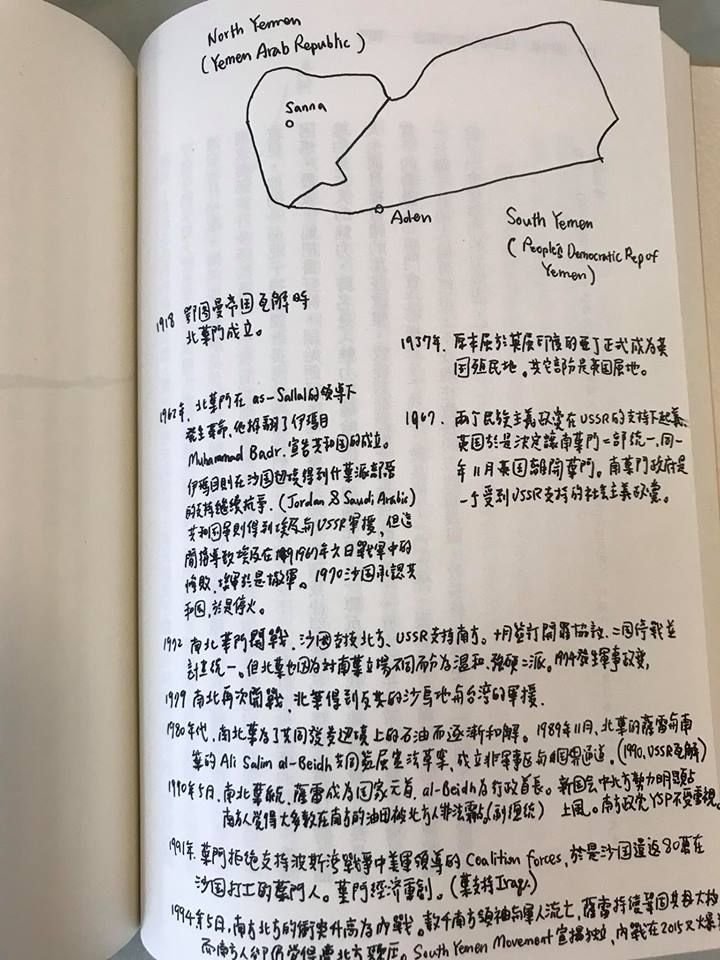 North Yemen
(Yemen Arab Republic)
Sanna
Aden
South Yemen
(People's Democratic Rep of
Yemen)
1918 鄂图曼帝国瓦解時
北葉門成立。
1937年, 原本屬於英屬印度的亚丁正式成為英
国殖民地。其它部份是英国屬地。
1962年, 北葉門在 as-Sallal的領導下
發生革命, 他推翻了伊瑪目
Muhammad Badr. 宣告共和国的成立。
伊瑪目則在沙国边境得到什葉派部落
的支持继续抗爭. (Jordan & Saudi Arabic)
共和国軍則得到埃及与USSR軍援, 但這
間接導致埃及在1967年六日戰爭中的
慘敗, 埃軍於是撤軍。1970沙国承認共
和国, 於是停火。
1967. 兩个民族主義政黨在USSR的支持下起義
英国於是決定讓南葉門二部統一, 同一
年11月英国離開葉門。南葉門政府是
一个受到USSR支持的社会主義政黨。
1972 南北葉門開戰, 沙國支援北方、USSR支持南方。十月签訂開羅協议, 二国停戰並
計畫統一。但北葉也因為對南葉立場不同而分為温和、強硬二派。1974發生軍事政變,
1979 南北再次開戰, 北葉得到反共的沙烏地与台湾的軍援.
1980年代, 南北葉為了共同發覚边境上的石油而逐漸和解。1989年11月, 北葉的薩雷与南
葉的 Ali Salim al-Beidh 共同签层宪法草案, 成立非軍事区与国界通道。(1990, USSR瓦解)
1990年5月, 南北葉統, 薩雷成為国家元首, al-Beidh為行政首長。新国会中北方勢力明顯占
南方人覺得大多數在南方的油田被北方人非法霸占 (副總統) 上風。南方政党YSP不受重視。
1991年. 葉門拒绝支持波斯湾戰爭中美軍領導的 Coalition forces, 於是沙国遣返80萬在
沙国打工的葉門人。葉門经济重創。(葉支持Iraq.)
1994年5月, 南方北方的衝突升高為内戰。數千南方領袖与軍人流亡, 薩雷持续鞏固其
而南方人卻仍觉得遭北方頭压。South Yemen Movement 宣揚独立, 内戰在2015又爆